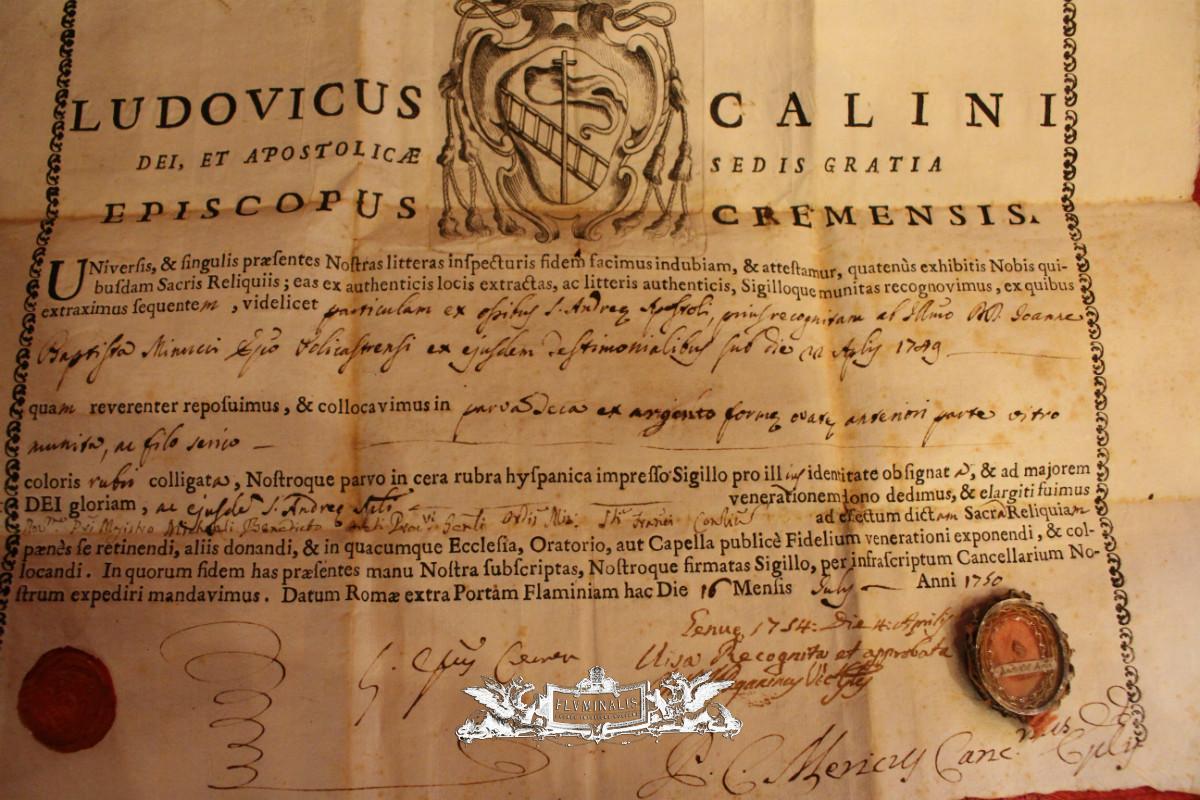 LUDOVICUS CALINI
DEI, ET APOSTOLICÆ SEDIS GRATIA
EPISCOPUS CREMENSIS.
UNiversis, & singulis præsentes Nostras litteras inspecturis fidem facimus indubiam, & attestamur, quatenùs exhibitis Nobis qui-
busdam Sacris Reliquiis; eas ex authenticis locis extractas, ac litteris authenticis, Sigilloque munitas recognovimus, ex quibus
extraximus sequentem, videlicet particulam ex ossibus S. Andreę Apostoli, prius recognitam ab Illmo Joanne
Baptista Minucci Ejusdem testimonialibus sub die 22 Aplis 1749
quam reverenter reposuimus, & collocavimus in parva Teca ex argento formę ovatę anteriori parte vitro
munita, ac filo serico
coloris rubri colligata, Nostroque parvo in cera rubra hyspanica impresso Sigillo pro illius identitate obsignata, & ad majorem
DEI gloriam, ac ejusdem S. Andreę venerationem dono dedimus, & elargiti fuimus
Magistro Benedicto Ordis Min. ad effectum dictam Sacra Reliquiam
pænès se retinendi, aliis donandi, & in quacumque Ecclesia, Oratorio, aut Capella publicè Fidelium venerationi exponendi, & col-
locandi. In quorum fidem has præsentes manu Nostra subscriptas, Nostroque firmatas Sigillo, per infrascriptum Cancellarium No-
strum expediri mandavimus. Datum Romæ extra Portam Flaminiam hac Die 16 Mensis July Anni 1750
Genuę 1754: Die 4: Aprilis
Visa Recognita et approbata
FLVMINALIS